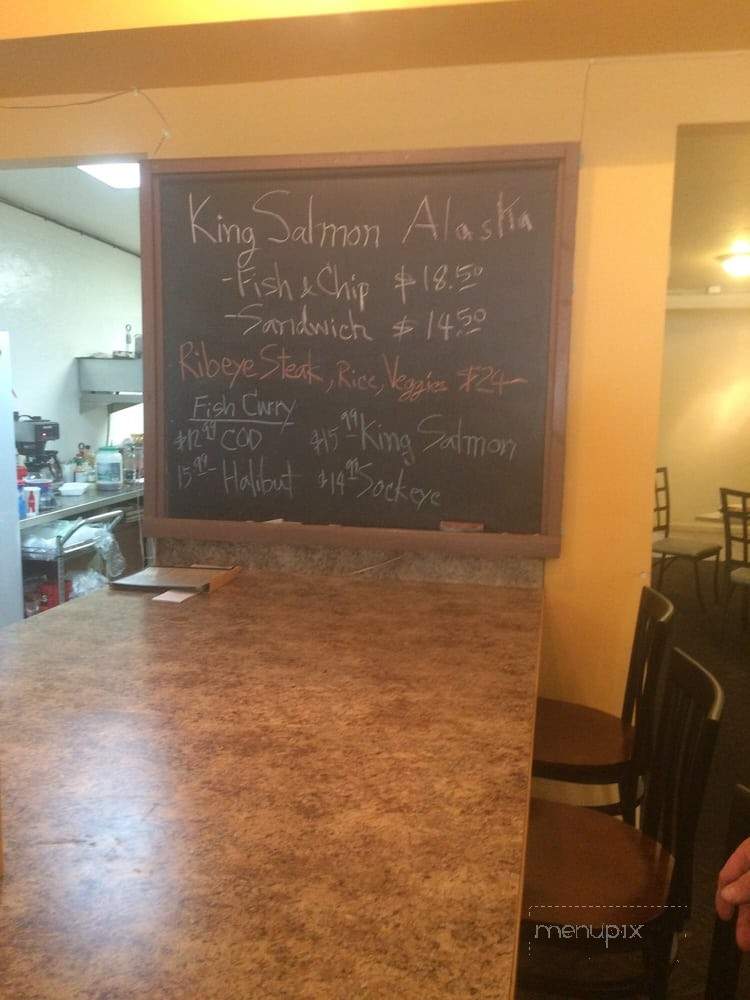 King Salmon Alaska
-Fish & Chip $18.50
-Sandwich $14.50
Ribeye Steak, Rice, Veggies $24-
Fish Curry
$12.99 COD $15.99 King Salmon
15.99- Halibut $14.99 Sockeye
menupix